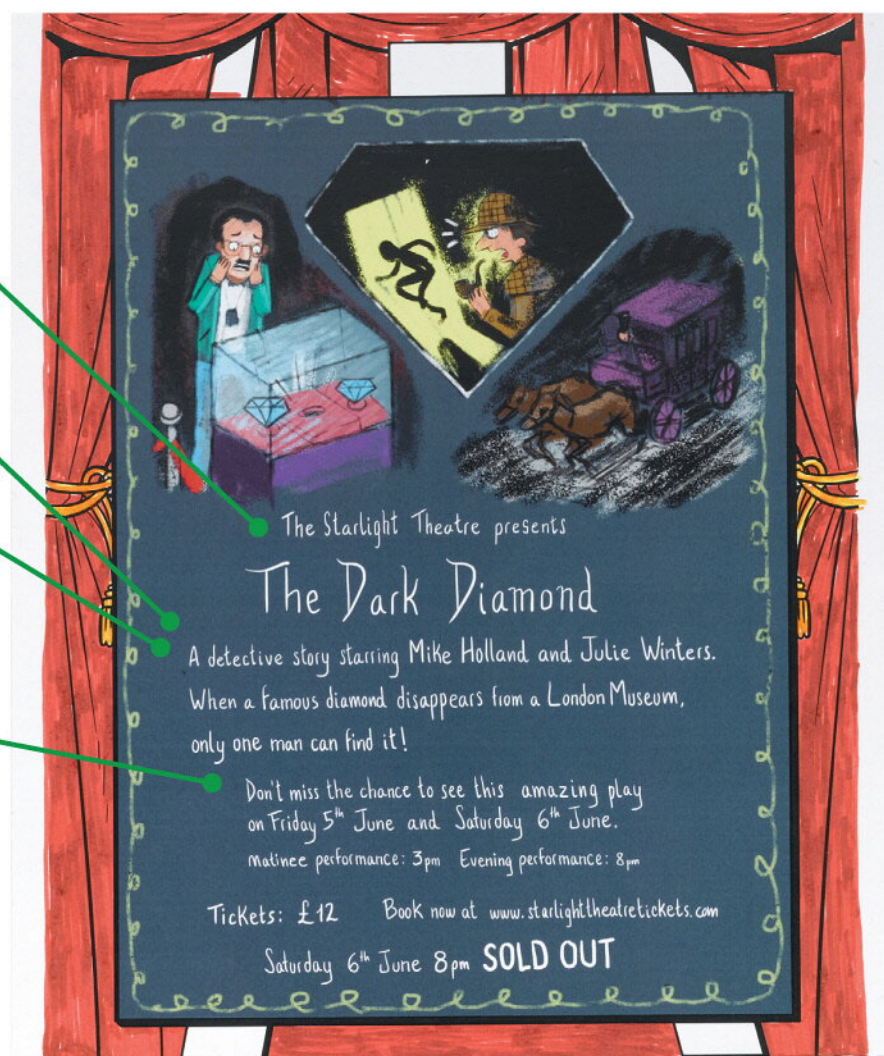 The Starlight Theatre presents
The Dark Diamond
A detective story starring Mike Holland and Julie Winters.
When a famous diamond disappears from a London Museum,
only one man can find it!
Don't miss the chance to see this amazing play
on Friday 5th June and Saturday 6th June.
matinee performance: 3pm Evening performance: 8pm
Tickets: £12 Book now at www.starlighttheatretickets.com
Saturday 6th June 8pm SOLD OUT